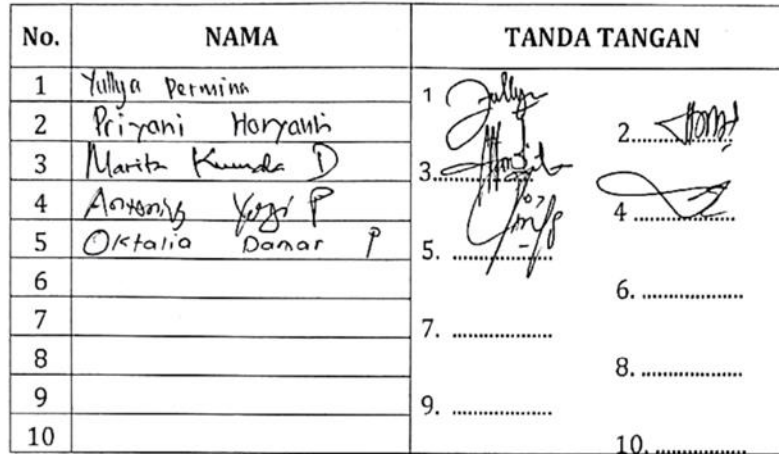 No. NAMA TANDA TANGAN
1 Yullya Permina 1
2 Priyani Haryanti 2..............
3 Marita D 3..............
4 Yogi P 4..............
5 Oktalia Danar P 5. ..............
6 6. ..............
7 7. ..............
8 8. ..............
9 9. ..............
10 10. ..............